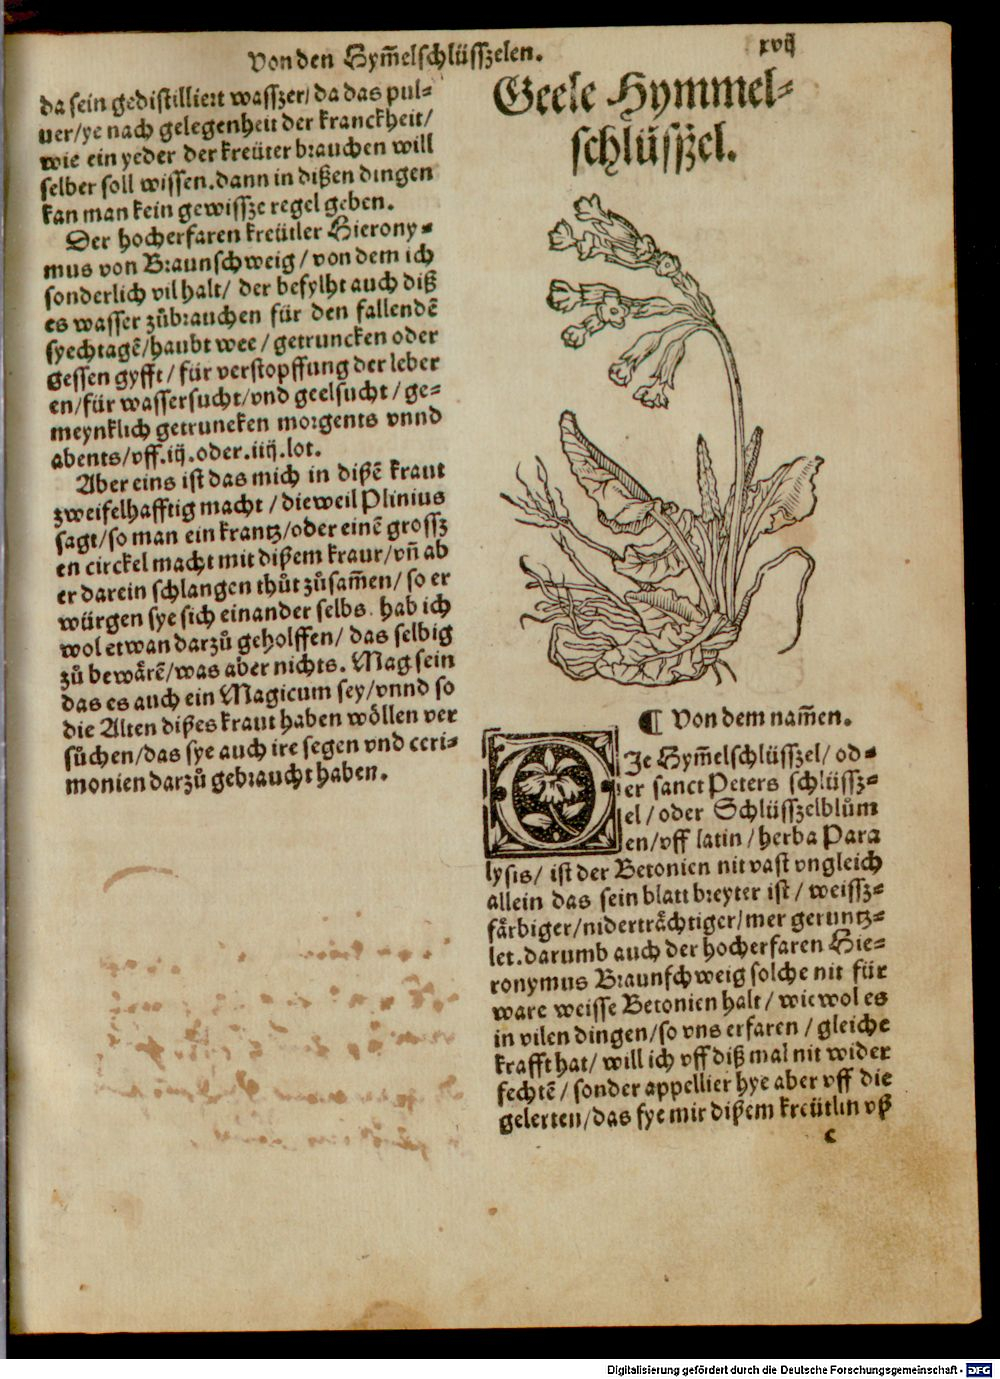 Von den Hym̄elschlüsszelen.
xvij
da sein gedistilliert wasszer/ da das pul⸗
uer/ye nach gelegenheit der kranckheit/
wie ein yeder der kreüter brauchen will
selber soll wissen. dann in dißen dingen
kan man kein gewissze regel geben.
Der hocherfaren kreütler Hierony⸗
mus von Braunschweig/ von dem ich
sonderlich vil halt/ der befylht auch diß
es wasser zůbrauchen für den fallendē
syechtagē/haubt wee/ getruncken oder
gessen gyfft/ für verstopffung der leber
en/für wassersucht/vnd geelsucht/ ge⸗
meynklich getruncken morgents vnnd
abents/vff.iij.oder.iiij.lot.
Aber eins ist das mich in dißē kraut
zweifelhafftig macht/ dieweil Plinius
sagt/so man ein krantz/oder einē grossz
en circkel macht mit dißem kraut/vn̄ ab
er darein schlangen thůt zůsam̄en/ so er
würgen sye sich einander selbs. hab ich
wol etwan darzů geholffen/ das selbig
zů bewårē/was aber nichts. Mag sein
das es auch ein Magicum sey/vnnd so
die Alten dißes kraut haben wöllen ver
sůchen/das sye auch ire segen vnd ceri⸗
monien darzů gebraucht haben.
Geele Hymmel⸗
schlüsszel.
¶ Von dem nam̄en.
DJe Hym̄elschlüsszel/ od⸗
er sanct Peters schlüssz⸗
el/ oder Schlüsszelblům
en/vff latin/ herba Para
lysis/ ist der Betonien nit vast vngleich
allein das sein blatt breyter ist/ weissz⸗
färbiger/niderträchtiger/mer geruntz⸗
let. darumb auch der hocherfaren Hie⸗
ronymus Braunschweig solche nit für
ware weisse Betonien halt/ wie wol es
in vilen dingen/so vns erfaren/ gleiche
krafft hat/ will ich vff diß mal nit wider
fechtē/ sonder appellier hye aber vff die
gelerten/das sye mir dißem kreütlin vß
c
Digitalisierung gefördert durch die Deutsche Forschungsgemeinschaft - DFG